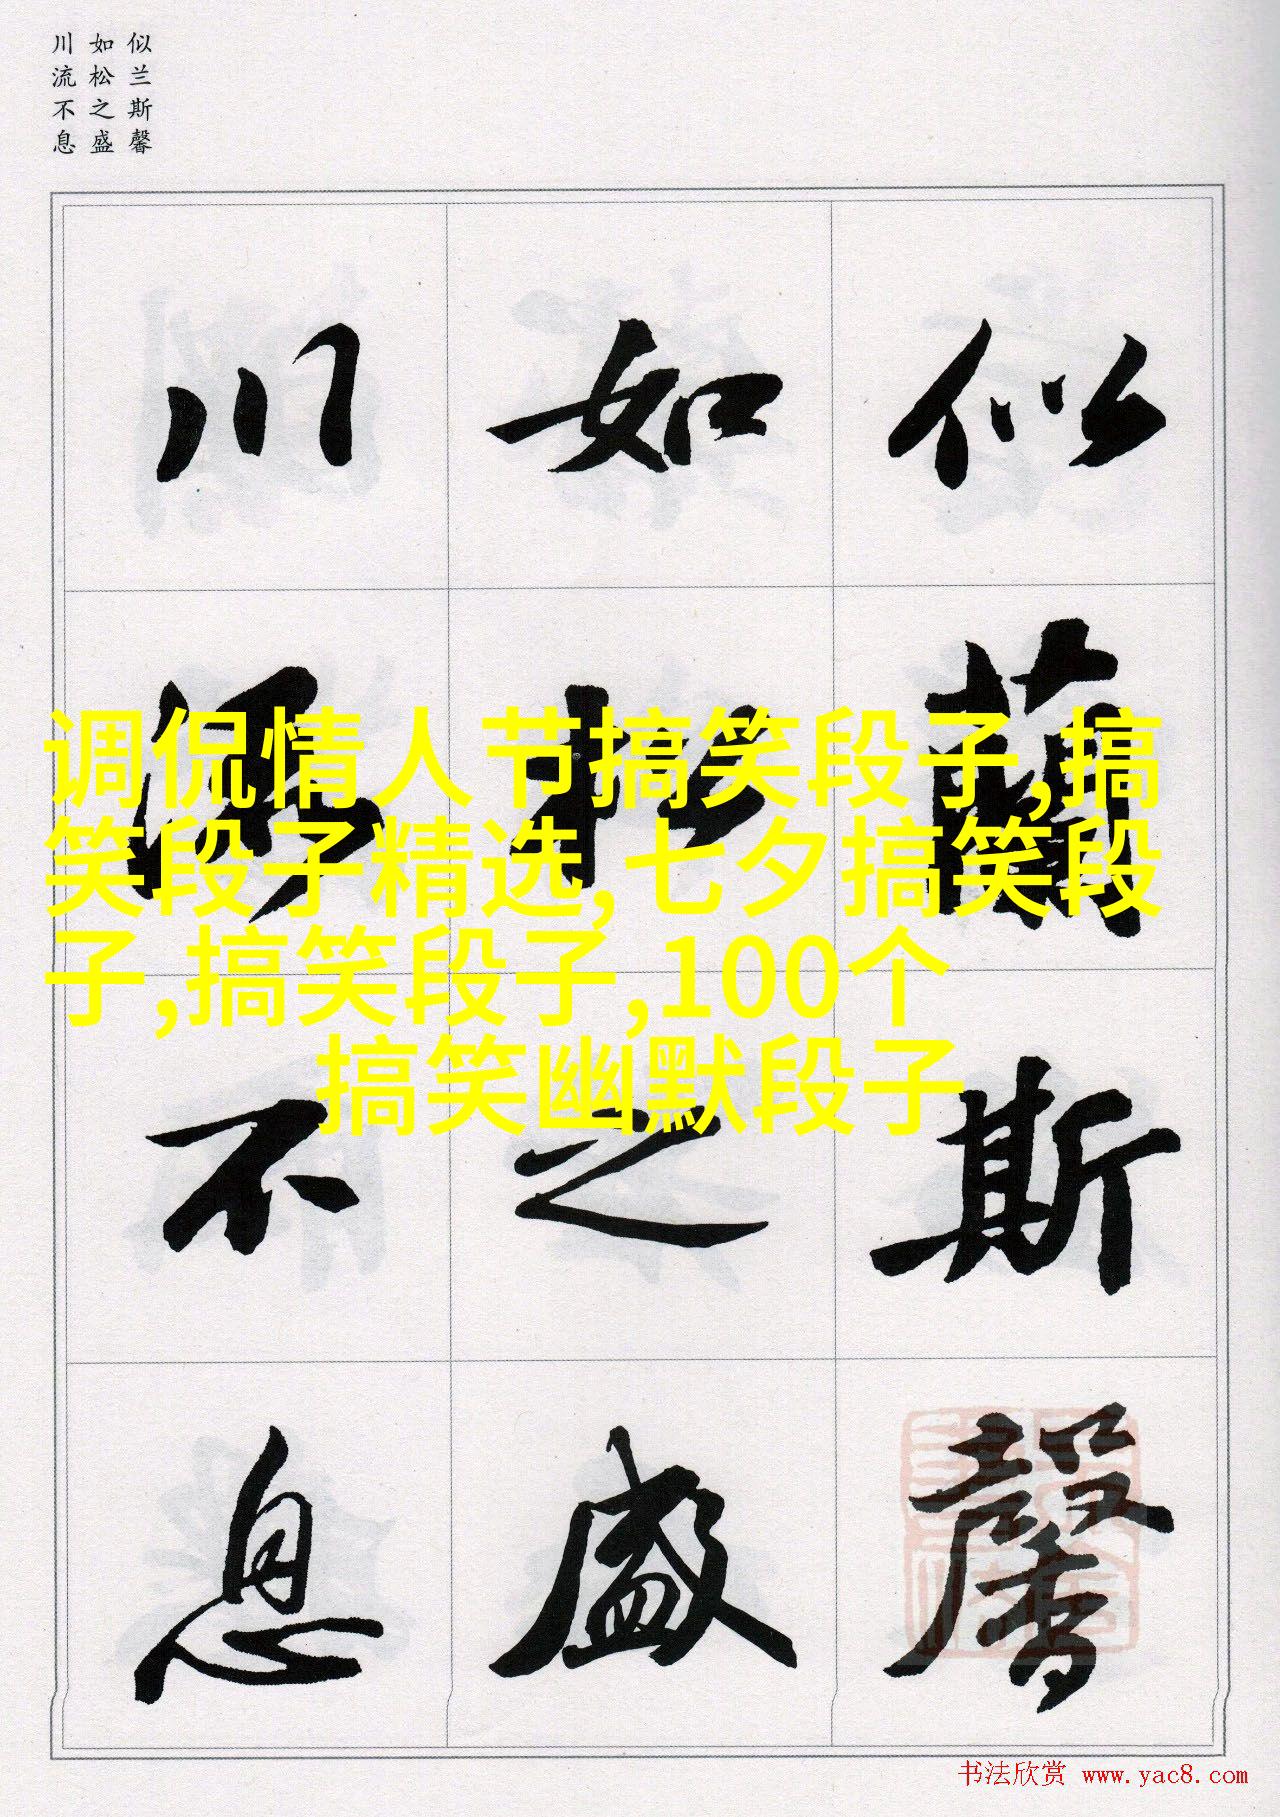 似兰斯馨
如松之盛
川流不息
似蘭斯馨
如松之盛
川流不息
调侃情人节搞笑段子,搞
笑段子精选,七夕搞笑段
子,搞笑段子,100个
搞笑幽默段子
书法欣赏 www.yac8.com